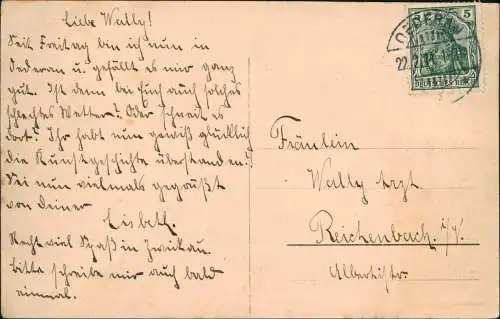 Liebe Wally!
Seit Freitag bin ich nun in
Oederan u. gefällt es mir ganz
gut. Ist denn bei Euch auch solches
schlechtes Wetter? Oder schneit es
dort? Ihr habt nun gewiß glücklich
die Kunstgeschichte überstanden?
Sei nun vielmals gegrüßt
von Deiner
Lisbeth.
Recht viel Spaß in Zwickau.
Bitte schreibe mir auch bald
einmal.
OEDERAN
22.2.11
5
DEUTSCHES REICH
Fräulein
Wally Arzt.
Reichenbach, i/V.
Albertistr.